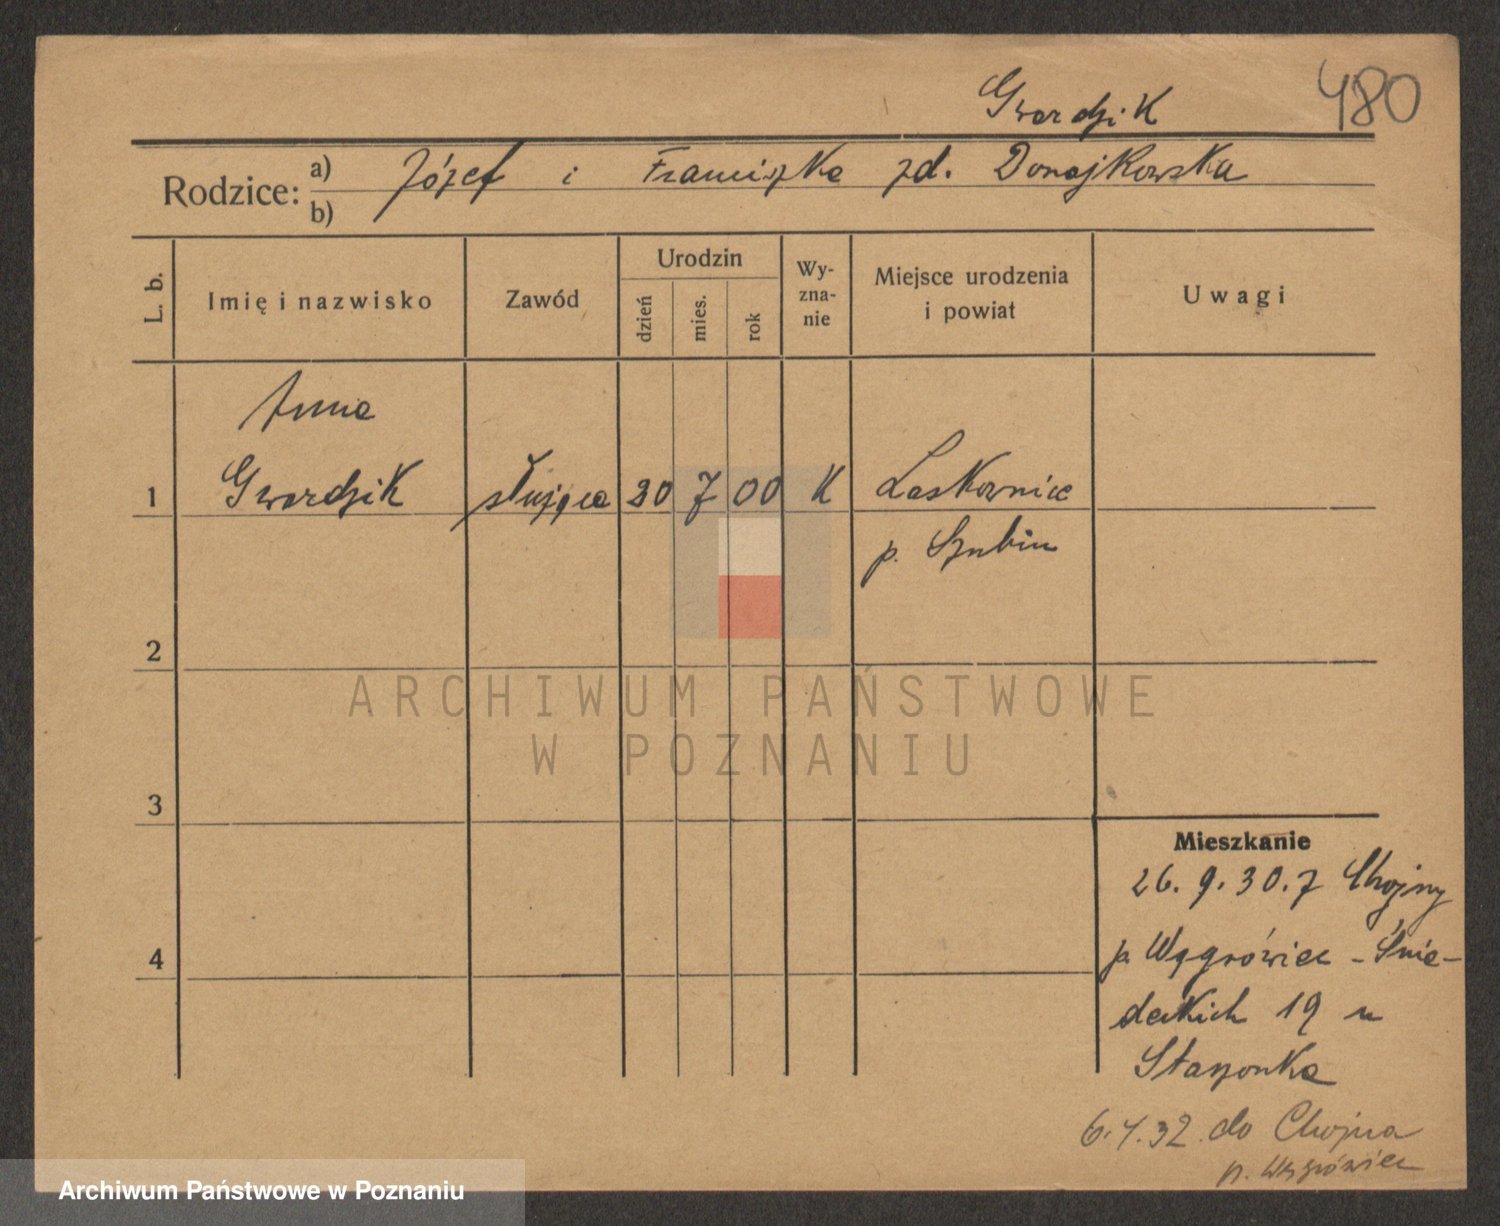 Gwardzik 480
Rodzice: a) Józef i Franciszka zd. Donajkowska
b)
L. b. Imię i nazwisko Zawód Urodzin dzień mies. rok Wy-zna-nie Miejsce urodzenia i powiat Uwagi
Anna
1 Gwardzik służąca 20 7 00 K Laskownica
p. Szubin
2
ARCHIWUM PAŃSTWOWE
W POZNANIU
3
Mieszkanie
26. 9. 30. z Chojny
p. Wągrówiec - Śnia-
deckich 19 u
Staszonka
4
6.7.32 do Chojna
p. Wągrówiec
Archiwum Państwowe w Poznaniu